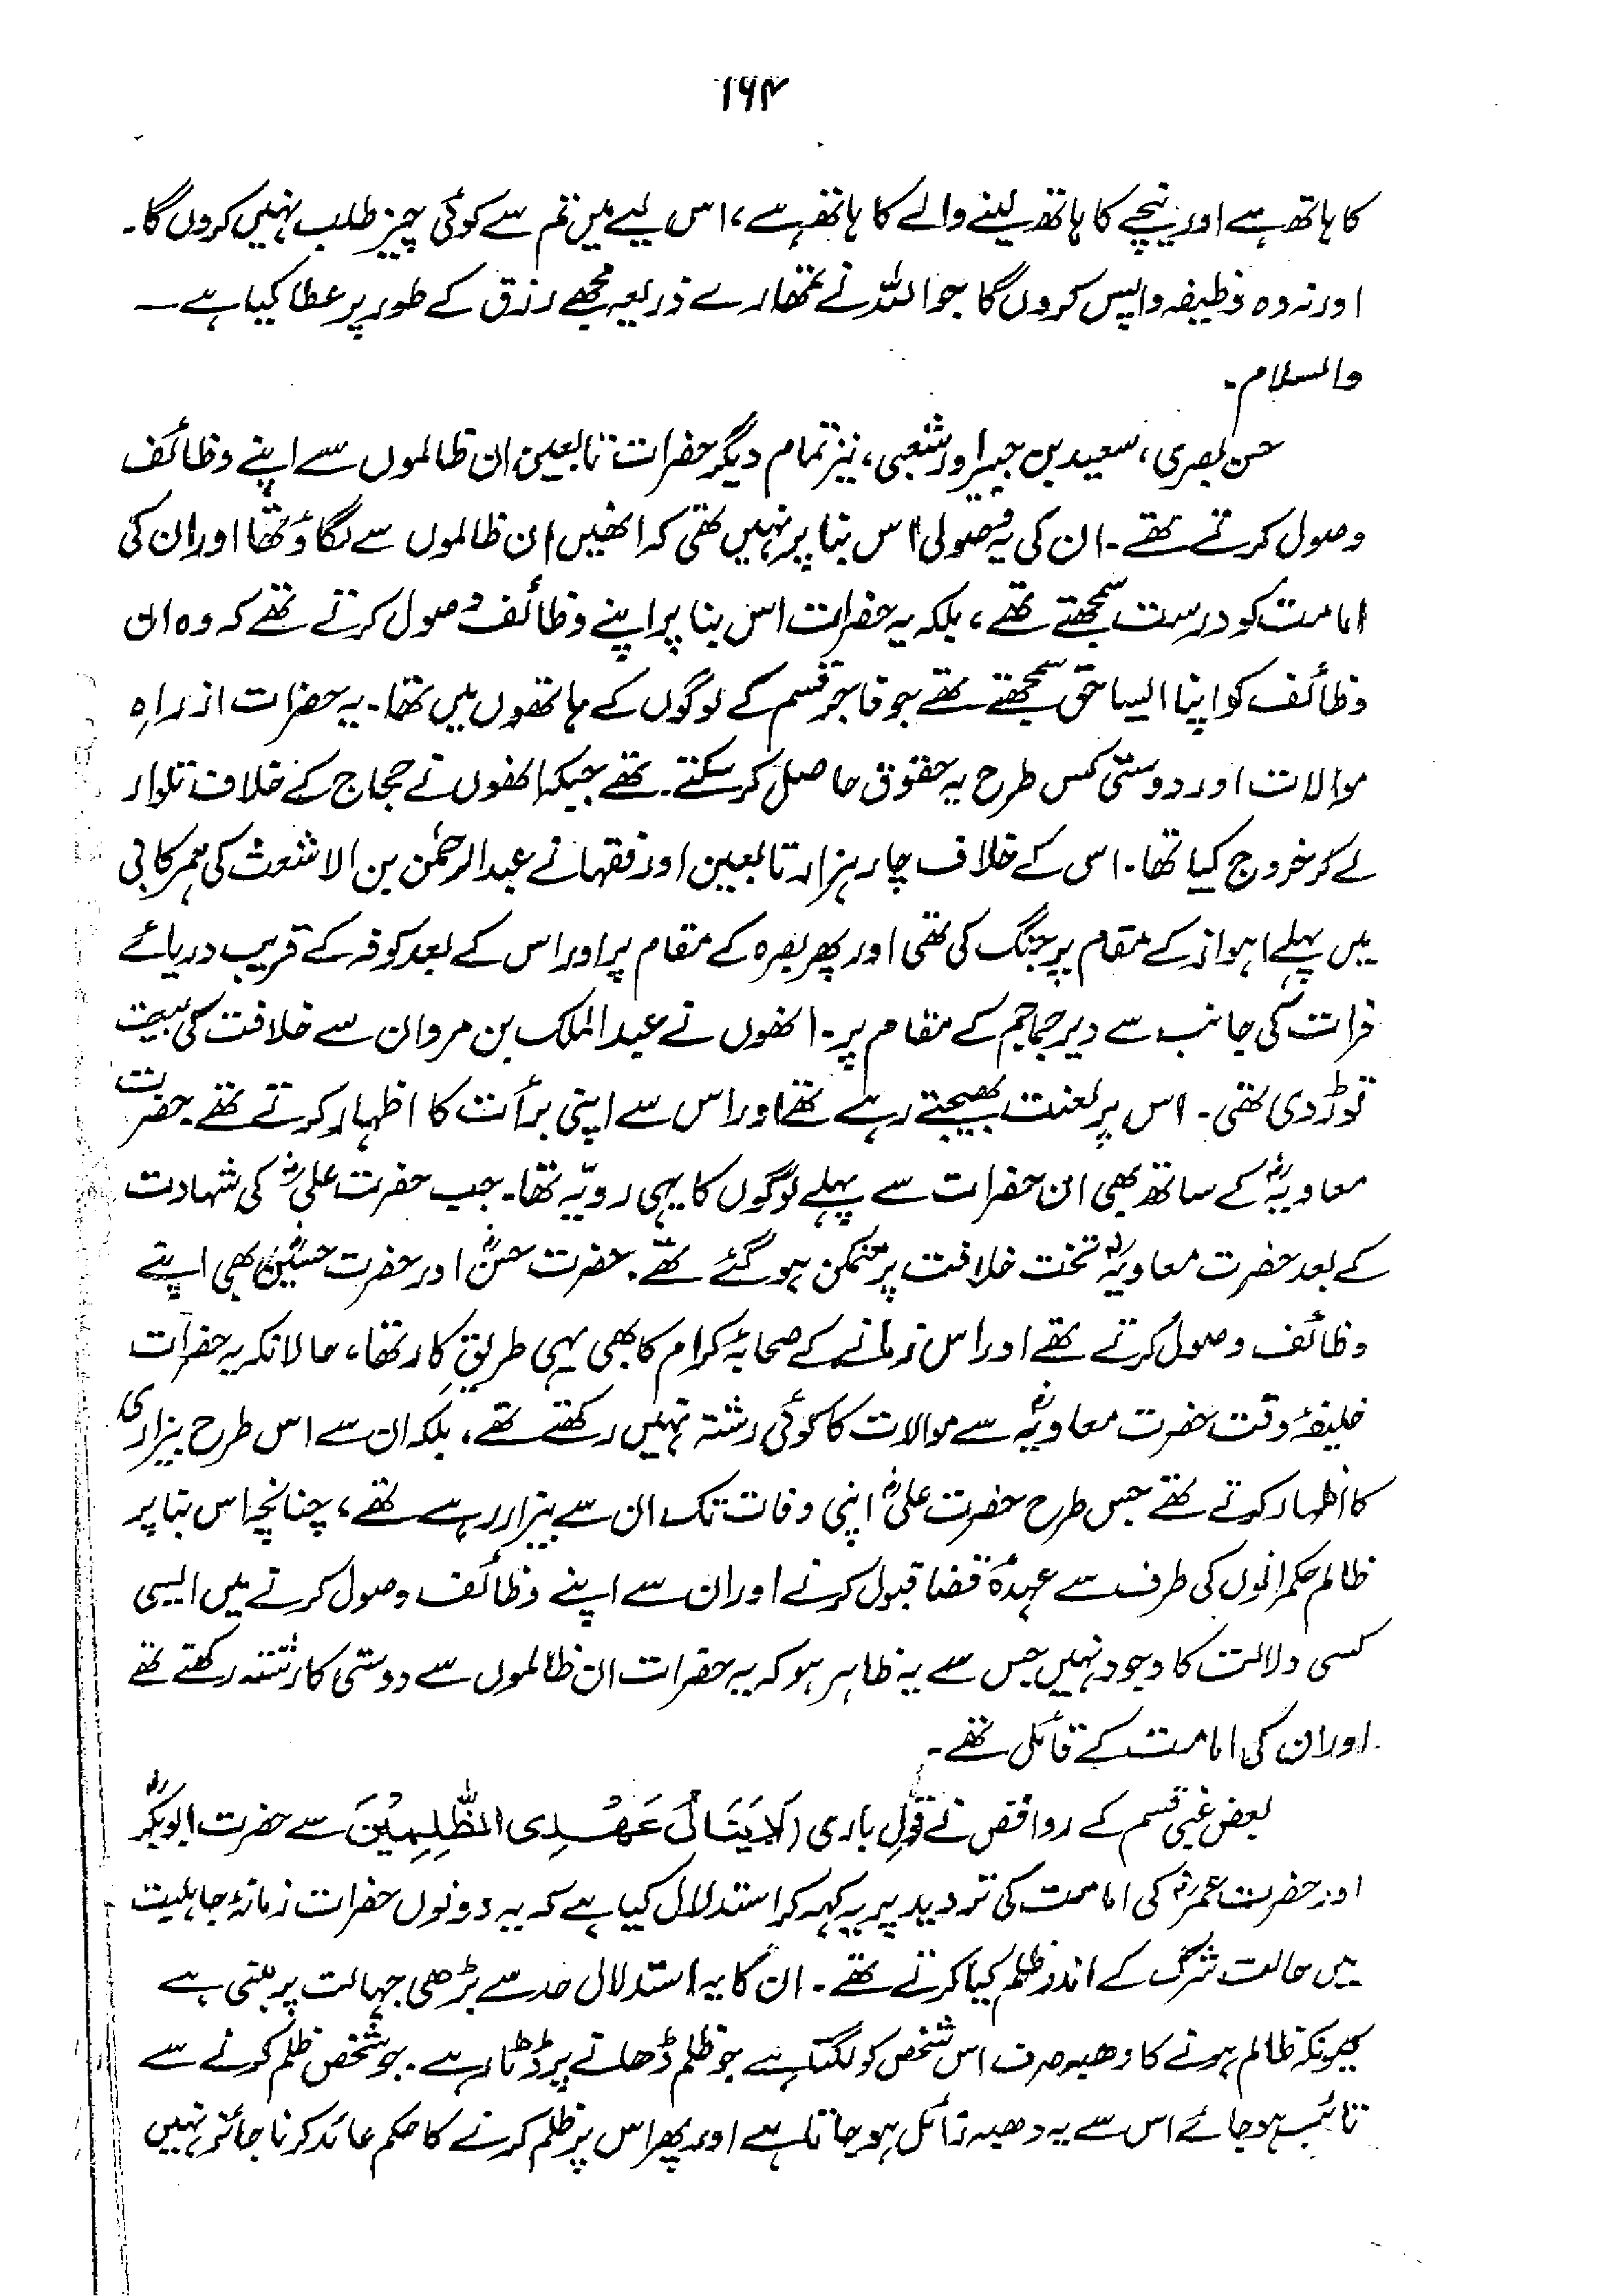 ۱۶۴
کا ہاتھ ہے اور نیچے کا ہاتھ لینے والے کا ہاتھ ہے، اس لیے میں تم سے کوئی چیز طلب نہیں کروں گا۔
اور نہ وہ وظیفہ واپس کروں گا جو اللہ نے تمھارے ذریعہ مجھے رزق کے طور پر عطا کیا ہے ۔
والسلام۔
حسن بصری، سعید بن جبیر اور شعبی، نیز تمام دیگر حضرات تابعین ان ظالموں سے اپنے وظائف
وصول کرتے تھے۔ ان کی یہ وصولی اس بنا پر نہیں تھی کہ انھیں ان ظالموں سے لگاؤ تھا اور ان کی
امامت کو درست سمجھتے تھے، بلکہ یہ حضرات اس بنا پر اپنے وظائف وصول کرتے تھے کہ وہ ان
وظائف کو اپنا ایسا حق سمجھتے تھے جو فاجر قسم کے لوگوں کے ہاتھوں میں تھا۔ یہ حضرات از راہِ
موالات اور دوستی کس طرح یہ حقوق حاصل کر سکتے تھے جبکہ انھوں نے حجاج کے خلاف تلوار
لے کر خروج کیا تھا۔ اس کے خلاف چار ہزار تابعین اور فقہا نے عبدالرحمٰن بن الاشعث کی ہمرکابی
میں پہلے اہواز کے مقام پر جنگ کی تھی اور پھر بصرہ کے مقام پر اور اس کے بعد کوفہ کے قریب دریائے
فرات کی جانب سے دیر جماجم کے مقام پر۔ انھوں نے عبدالملک بن مروان سے خلافت کی بیعت
توڑ دی تھی۔ اس پر لعنت بھیجتے رہے تھے اور اس سے اپنی برأت کا اظہار کرتے تھے۔ حضرت
معاویہؓ کے ساتھ بھی ان حضرات سے پہلے لوگوں کا یہی رویّہ تھا۔ جب حضرت علیؓ کی شہادت
کے بعد حضرت معاویہؓ تخت خلافت پر متمکن ہو گئے تھے۔ حضرت حسنؓ اور حضرت حسینؓ بھی اپنے
وظائف وصول کرتے تھے اور اس زمانے کے صحابۂ کرام کا بھی یہی طریقِ کار تھا، حالانکہ یہ حضرات
خلیفۂ وقت حضرت معاویہؓ سے موالات کا کوئی رشتہ نہیں رکھتے تھے، بلکہ ان سے اس طرح بیزاری
کا اظہار کرتے تھے جس طرح حضرت علیؓ اپنی وفات تک ان سے بیزار رہے تھے، چنانچہ اس بنا پر
ظالم حکمرانوں کی طرف سے عہدۂ قضا قبول کرنے اور ان سے اپنے وظائف وصول کرنے میں ایسی
کسی دلالت کا وجود نہیں جس سے یہ ظاہر ہو کہ یہ حضرات ان ظالموں سے دوستی کا رشتہ رکھتے تھے
اور ان کی امامت کے قائل تھے۔
بعض غبی قسم کے روافض نے قولِ باری (لَا یَنَالُ عَھْدِی الظّٰلِمِیْنَ سے حضرت ابوبکرؓ
اور حضرت عمرؓ کی امامت کی تردید پر یہ کہہ کر استدلال کیا ہے کہ یہ دونوں حضرات زمانۂ جاہلیت
میں حالت شرک کے اندر ظلم کیا کرتے تھے۔ ان کا یہ استدلال حد سے بڑھی جہالت پر مبنی ہے
کیونکہ ظالم ہونے کا دھبہ صرف اس شخص کو لگتا ہے جو ظلم ڈھانے پر ڈٹا رہے۔ جو شخص ظلم کرنے سے
تائب ہو جائے اس سے یہ دھبہ زائل ہو جاتا ہے اور پھر اس پر ظلم کرنے کا حکم عائد کرنا جائز نہیں